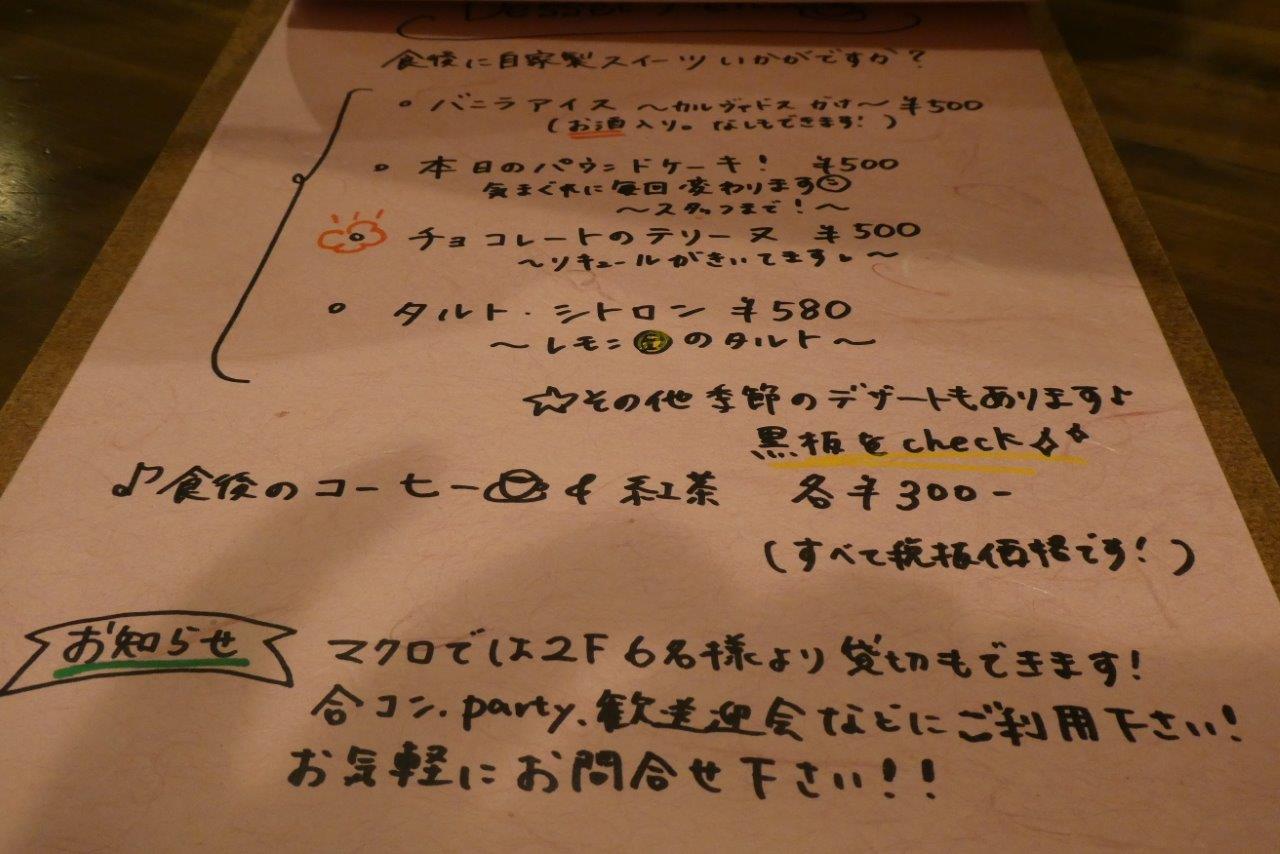 Dessert menu
食後に自家製スイーツいかがですか?
○ バニラアイス 〜カルヴァドスがけ〜 ¥500
(お酒入り。なしもできます!)
○ 本日のパウンドケーキ! ¥500
気まぐれに毎回変わります
〜スタッフまで!〜
○ チョコレートのテリーヌ ¥500
〜リキュールがきいてます。〜
○ タルト・シトロン ¥580
〜レモンのタルト〜
☆その他季節のデザートもあります♪
黒板をcheck
♪食後のコーヒー & 紅茶 各¥300-
(すべて税抜価格です!)
お知らせ
マクロでは2F 6名様より貸切もできます!
合コン、party、歓送迎会などにご利用下さい!
お気軽にお問合せ下さい!!